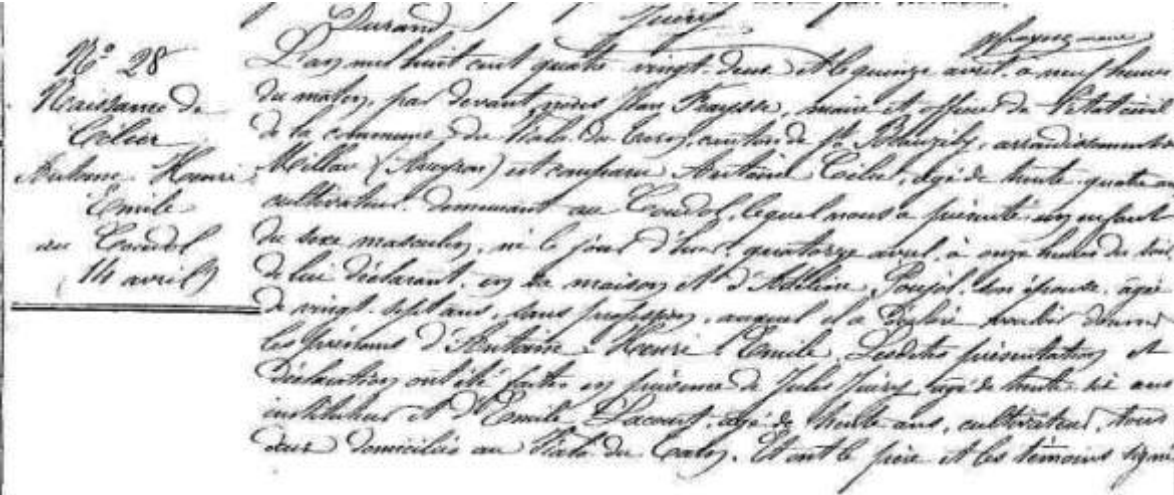 Durand
N° 28
Naissance de
Celier
Antoine Henri
Emile
au Coudol
14 avril
L'an mil huit cent quatre vingt-deux et le quinze avril, à neuf heures
du matin, par devant nous Jean Fraysse, maire et officier de l'état civil
de la commune du Viala du Tarn, canton de St Beauzély, arrondissement
Millau (Aveyron) est comparu Antoine Celier, agé de trente quatre ans
cultivateur, demeurant au Coudol, lequel nous a présenté un enfant
du sexe masculin, né le jour d'hier quatorze avril, à onze heures du
de lui déclarant, en sa maison et d'Adeline Poujol, son épouse, agée
de vingt-sept ans, sans profession, auquel il a déclaré vouloir donner
les prénoms d'Antoine Henri Emile. Lesdites présentation et
déclaration ont été faites en présence de Jules agé de trente six ans
instituteur et d'Emile Lacourt, agé de trente ans, cultivateur, tous
deux domiciliés au Viala du Tarn. Et ont le père et les témoins signé